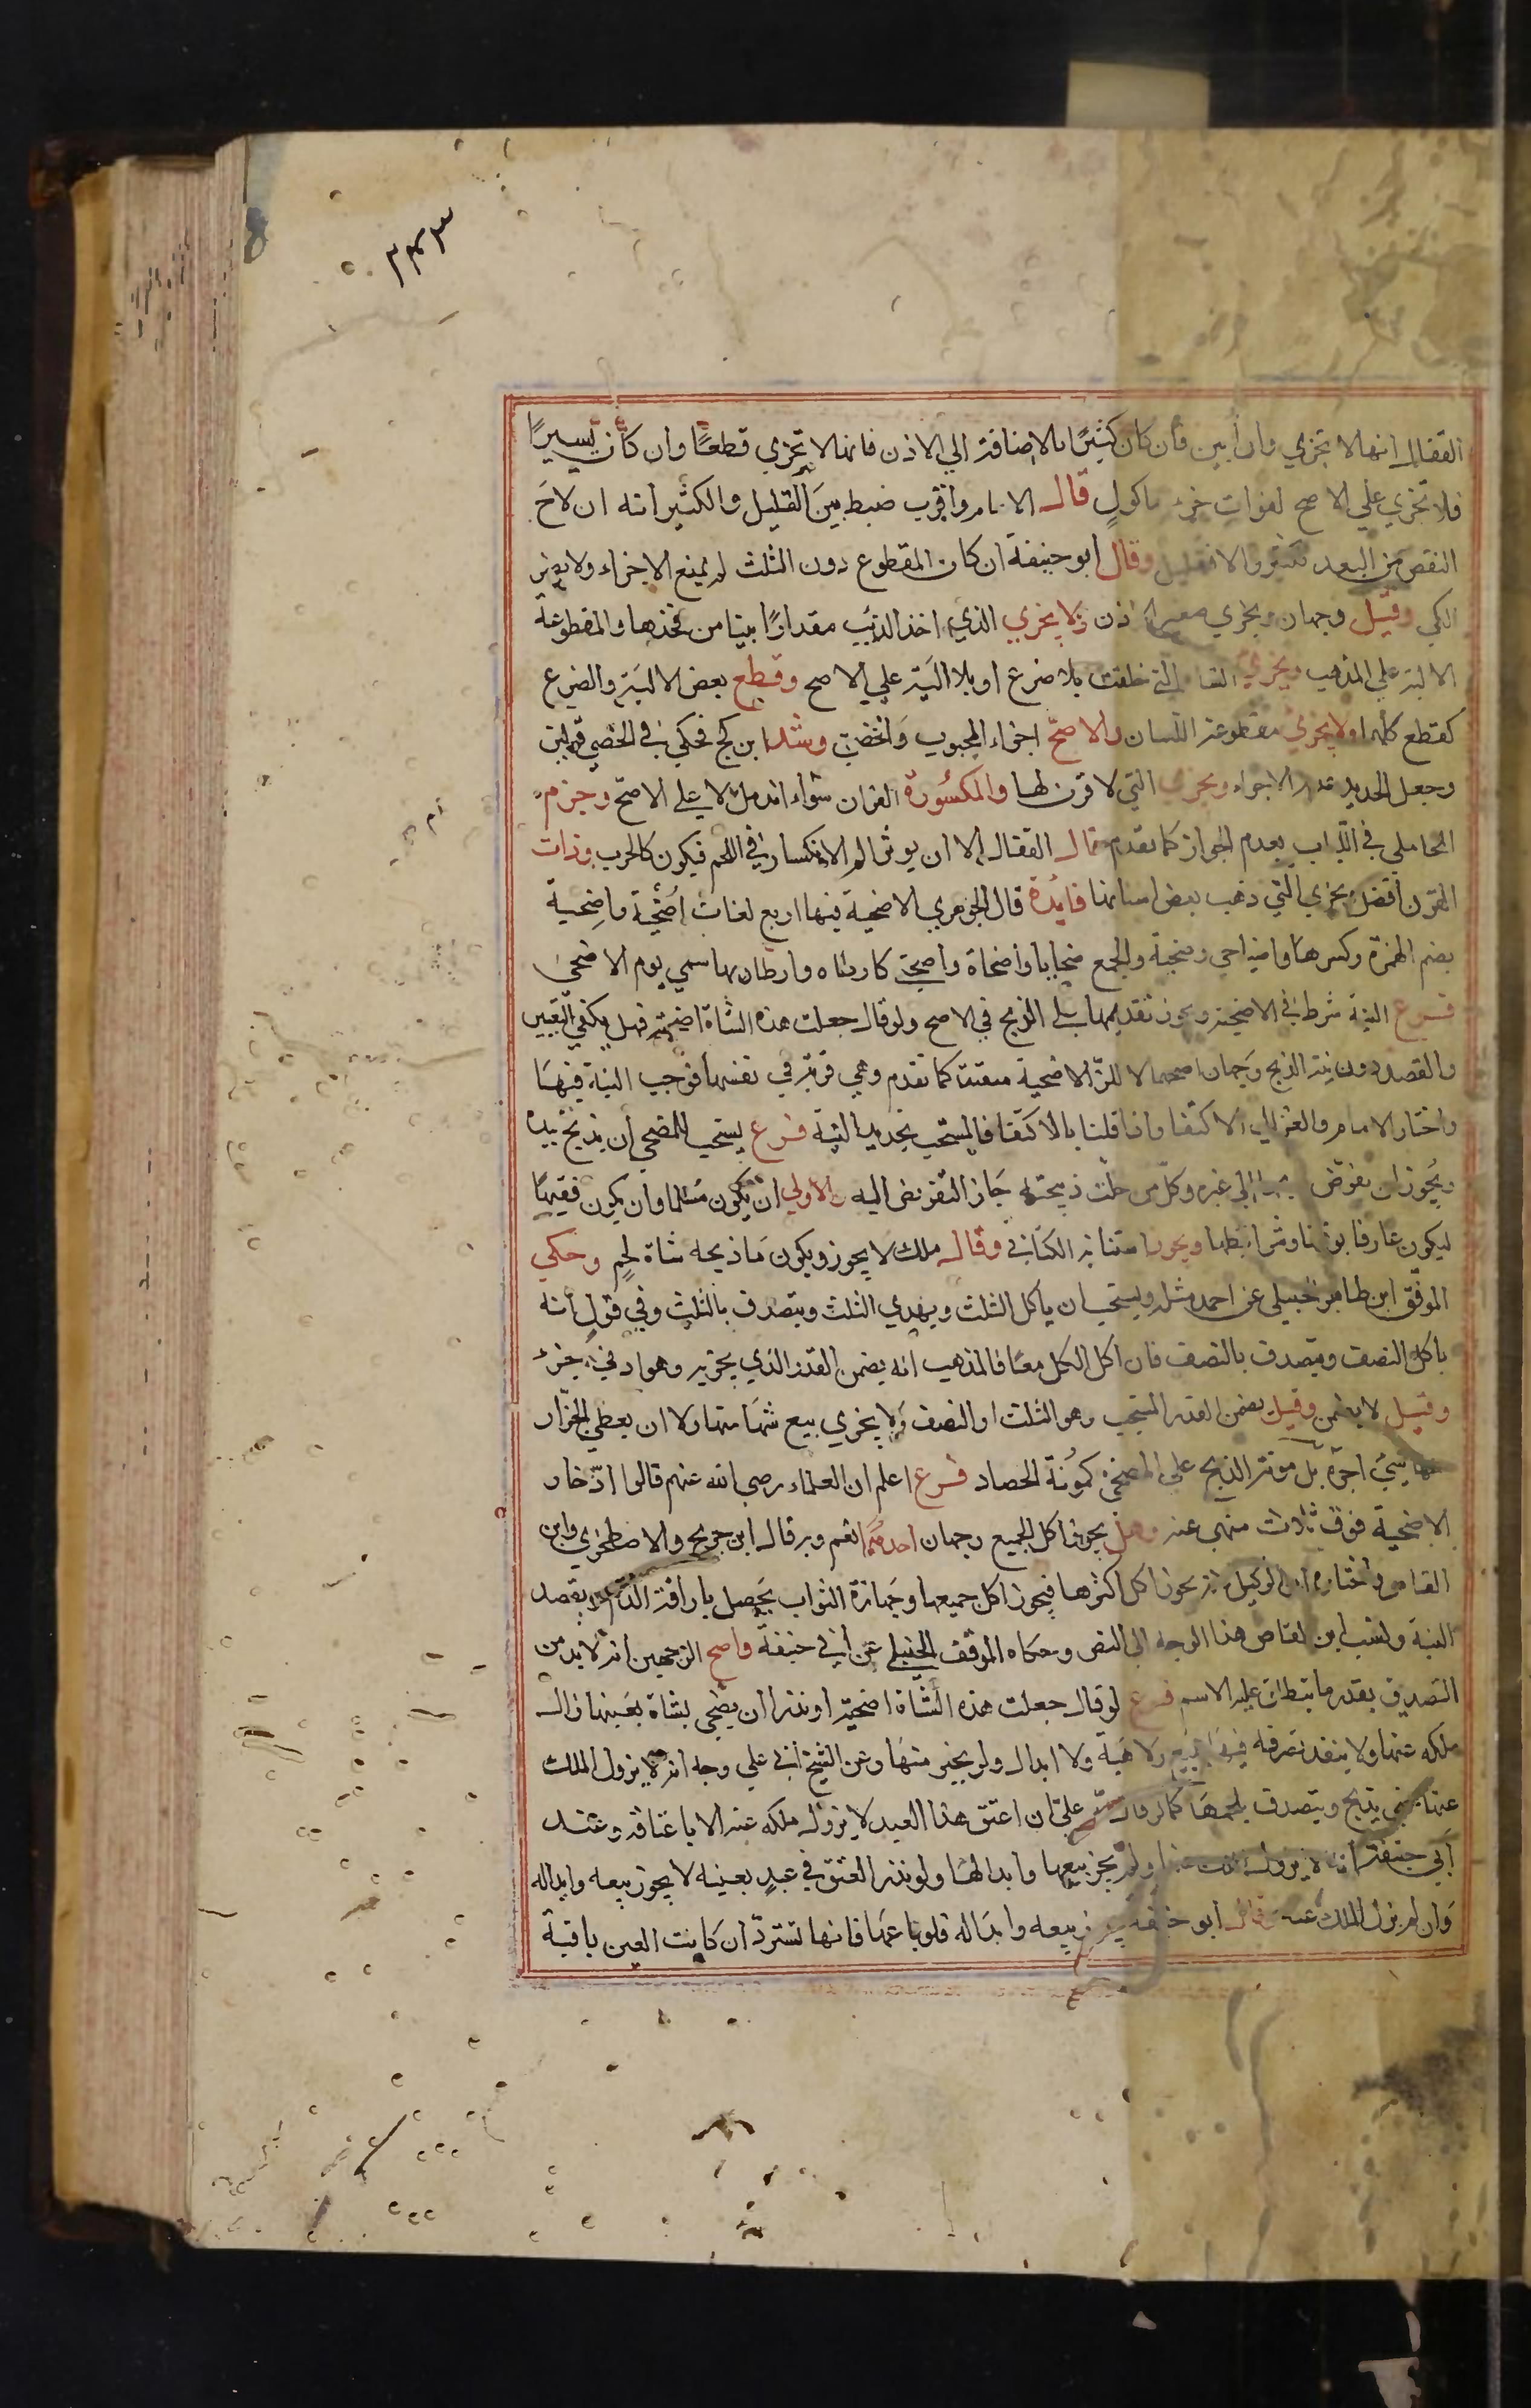 ٣٤٣
القفال انها لا تجزي وان أبين فان كان كثيرًا بالاضافة الي الاذن فانها لا تجزي قطعًا وان كان يسيرًا
فلا تجزي علي الاصح لفوات جزء ماكول قال الامام واقرب ضبط بين القليل والكثير انه ان لاح
النقص من البعد فكثير والا فقليل وقال ابو حنيفة ان كان المقطوع دون الثلث لم يمنع الاجزاء ولا يضر
الكي وقيل وجهان ويجزي صغيرة الاذن ولا يجزي الذي اخذ الذئب مقدارًا بينا من فخذها والمقطوعة
الالية علي المذهب ويجزي التي خلقت بلا ضرع او بلا الية علي الاصح وقطع بعض الالية والضرع
كقطع كلها ولا يجزي مقطوعة اللسان والاصح اجزاء المجبوب والخصي وشذ ابن كج فحكي في الخصي قولين
وجعل الجديد عدم الاجزاء ويجزي التي لا قرن لها والمكسورة القرن سواء اندمل ام لا علي الاصح وجزم
المحاملي في اللباب بعدم الجواز كما تقدم قال القفال الا ان يوثر الم الانكسار في اللحم فيكون كالجرب وذات
القرن افضل ويجزي التي ذهب بعض اسنانها فايدة قال الجوهري الاضحية فيها اربع لغات اضحية واضحية
بضم الهمزة وكسرها واضاحي وضحية والجمع ضحايا واضحاة واضحي كارطاه وارطا وبها سمي يوم الاضحي
فرع النية شرط في الاضحية ويجوز تقديمها علي الذبح في الاصح ولو قال جعلت هذه الشاة اضحية فهل يكفي التعيين
والقصد دون نية الذبح وجهان اصحهما لا لان الاضحية سنة كما تقدم وهي قربة في نفسها فوجب النية فيها
واختار الامام والغزالي الاكتفا واذا قلنا بالاكتفا فالمستحب تجديد النية فرع يستحب للمضحي أن يذبح بيده
ويجوز ان يفوض الي غيره وكل من حلت ذبيحته جاز التفويض اليه والاولي ان يكون مسلما وان يكون فقيها
ليكون عارفا بوقتها وشرائطها ويجوز استنابة الكتابي وقال ملك لا يجوز ويكون ما ذبحه شاة لحم وحكي
الموفق ابن طاهر الحنبلي عن احمد مثله ويستحب ان ياكل الثلث ويهدي الثلث ويتصدق بالثلث وفي قول انه
ياكل النصف ويتصدق بالنصف فان اكل الكل معًا فالمذهب انه يضمن القدر الذي يجزيه وهو ادني جزء
وقيل لا يضمن وقيل يضمن القدر المستحب وهو الثلث او النصف ولا يجزي بيع شيء منها ولا ان يعطي الجزار
منها شيئ اجرة بل مونة الذبح علي المضحي كمونة الحصاد فرع اعلم ان العلماء رضي الله عنهم قالوا ادخار
الاضحية فوق ثلاث منهي عنه وهل يجوز اكل الجميع وجهان احدهما نعم وبه قال ابن جريج والاصطخري وابن
القاص واختاره ابن الوكيل لانه يجوز اكل اكثرها فيجوز اكل جميعها وجهازة الثواب يحصل باراقة الدم بقصد
النية ونسب ابن القاص هذا الوجه الي النص وحكاه الموفق الحنبلي عن ابي حنيفة واصح الوجهين انه لا بد من
التصدق بقدر ما ينطلق عليه الاسم فرع لو قال جعلت هذه الشاة اضحية او نذر ان يضحي بشاة بعينها زال
ملكه عنها ولا ينفذ تصرفه فيها ببيع ولا هبة ولا ابدال ولو بخير منها وعن الشيخ ابي علي وجه انه لا يزول الملك
عنها حتي يذبح ويتصدق بلحمها كما لو قال لله علي ان اعتق هذا العبد لا يزول ملكه عنه الا باعتاقه وعند
أبي حنيفة انه لا يزول الملك عنها ولم يجز بيعها وابدالها ولو نذر العتق في عبد بعينه لا يجوز بيعه وابداله
وان لم يزل الملك عنه وقال ابو حنيفة يجوز بيعه وابداله فلو باعها فانها تسترد ان كانت العين باقية